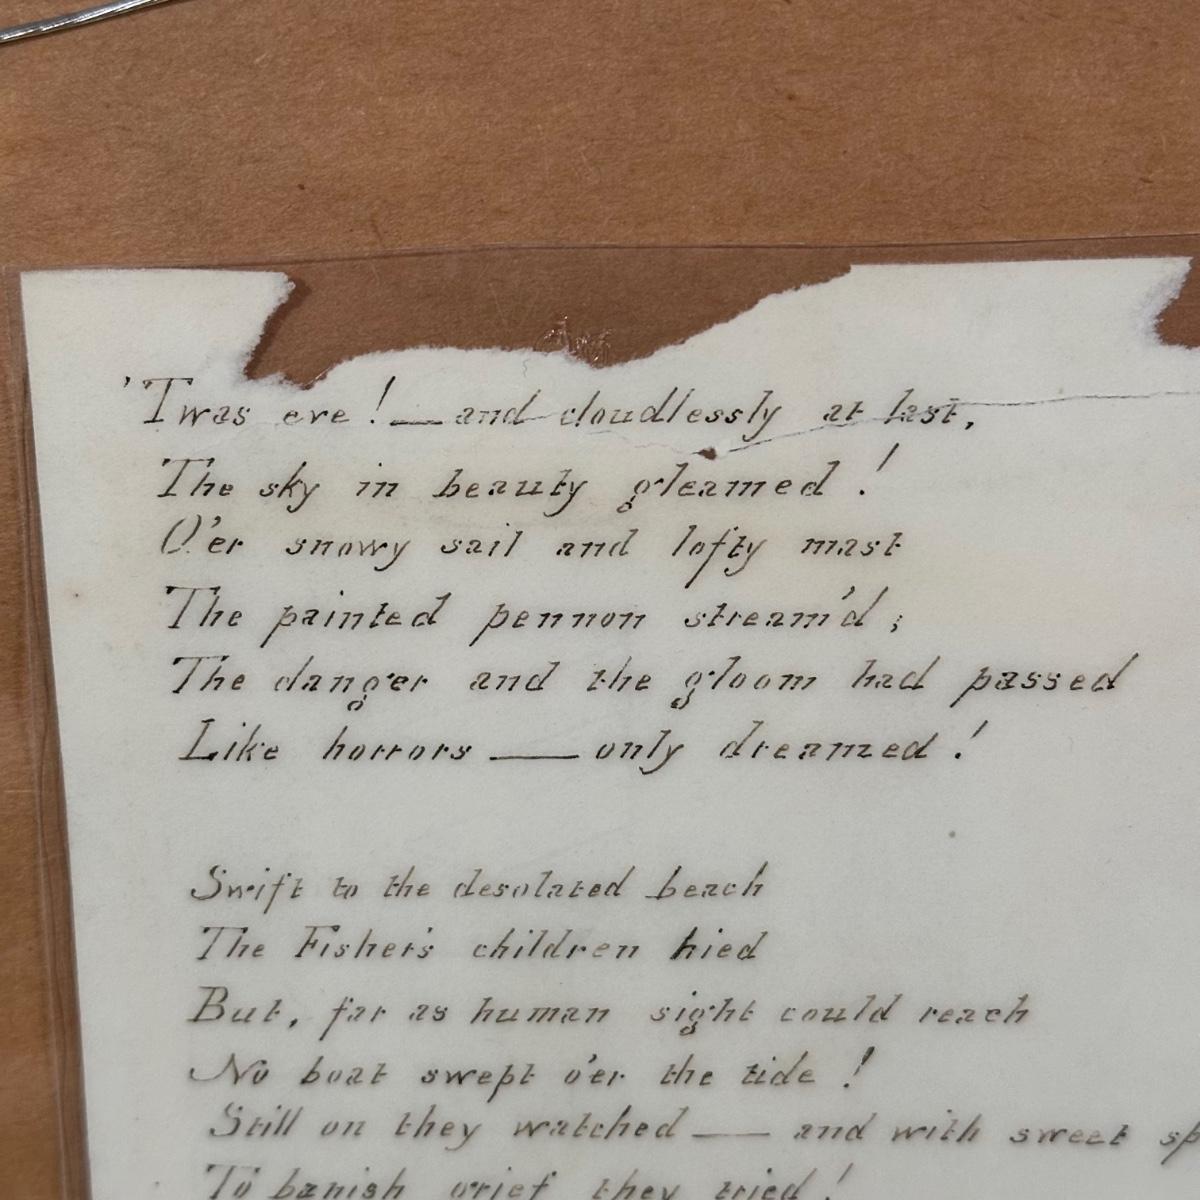 'Twas eve! — and cloudlessly at last,
The sky in beauty gleamed!
O'er snowy sail and lofty mast
The painted pennon stream'd;
The danger and the gloom had passed
Like horrors — only dreamed!
Swift to the desolated beach
The Fisher's children hied
But, far as human sight could reach
No boat swept o'er the tide!
Still on they watched — and with sweet
To banish grief they tried!